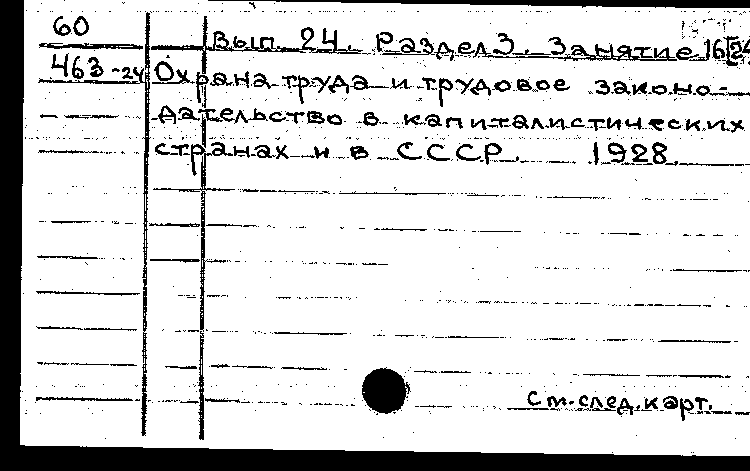 60
Вып. 24. Раздел 3. Занятие 16[24
463-24 Охрана труда и трудовое законо-
дательство в капиталистических
странах и в СССР. 1928.
См. след. карт.